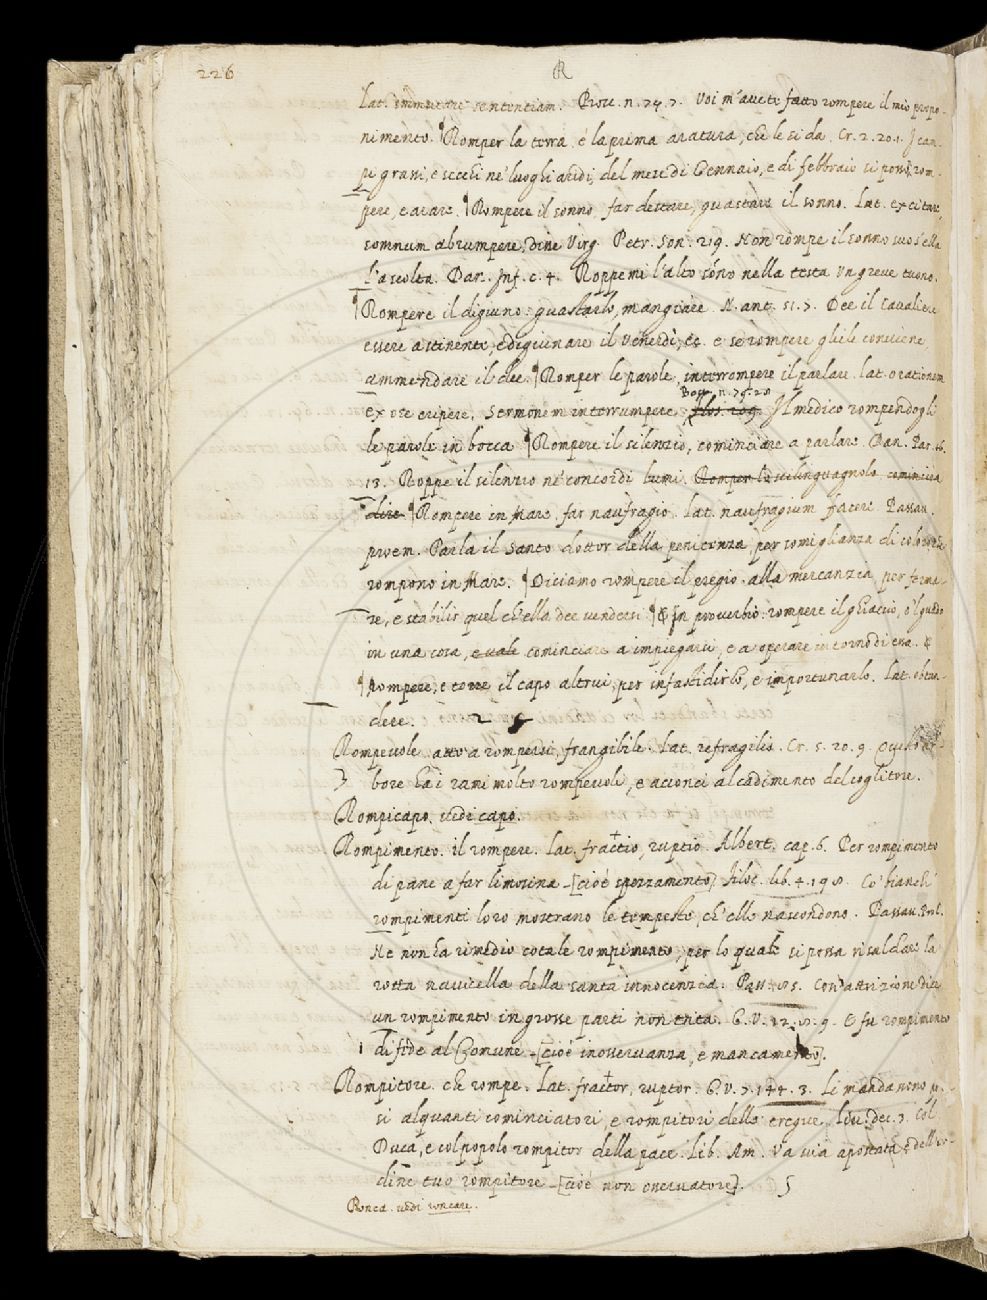 226
R
Lat. immutare sententiam. Prov. n. 74. 7. Voi m'avete fatto rompere il mio propo-
nimento. ¶Romper la terra è la prima aratura, che le si dà. Cr. 2. 20. 1. I cam-
pi grassi, e secchi ne' luoghi aridi, del mese di Gennaio, e di febbraio si posson rom-
pere, e arare. ¶Rompere il sonno, far destare, guastare il sonno. Lat. excitare,
somnum abrumpere, disse Virg. Petr. Son. 219. Non rompe il sonno suo s'ella
l'ascolta. Dan. Inf. c. 4. Roppemi l'alto sonno nella testa Un greve tuono.
¶Rompere il digiuno: guastarlo, mangiare. N. ant. 51. 5. Dee il Cavaliere
essere astinente, e digiunare il Venerdì, &c. e se'l rompere gliele conviene,
ammendare il dee. ¶Romper le parole, interrompere il parlare. lat. orationem
Bocc. n. 79. 28
ex ore eripere, sermonem interrumpere. Il medico rompendogli
le parole in bocca ¶Rompere il silenzio, cominciare a parlare. Dan. Par. 16.
13. Roppe il silenzio ne' concordi lumi. Romper lo scilinguagnolo cominciare a
dire ¶Rompere in Mare, far naufragio. Lat. naufragium facere. Passav.
proem. Parla il santo dottor della penitenza, per somiglianza di coloro che
rompono in Mare. ¶Diciamo rompere il pregio alla mercanzia, per ferma-
re, e stabilir quel ch'ella dee vendersi ¶& In proverbio: rompere il ghiaccio, o'l guado
in una cosa, e vale cominciare a impiegarsi, e a operare intorno di essa. &
¶rompere, e torre il capo altrui, per infastidirlo, e importunarlo. Lat. obtun-
dere. 2 5
Rompevole. atto a rompersi, frangibile. Lat. refragilis. Cr. 5. 20. 9. Questo ar-
3 bore ha i rami molto rompevoli, e acconci al cadimento del coglitore.
Rompicapo. vedi capo.
Rompimento. il rompere. Lat. fractio, ruptio. Albert. cap. 6. Per rompimento
di pane a far limosina [cioè spezzamento] Filoc. lib. 4. 198. Co' bianchi
rompimenti loro mostrano le tempeste, ch'elle nascondono. Passav.
Né non ha rimedio cotale rompimento, per lo quale si possa risalclare la
rotta navicella della santa innocenzia. Pass. Con attrizione dice
un rompimento in grosse parti non trita. G. V. 12. 8. 9. E fu rompimento
1 di fede al Comune [cioè inosservanza, e mancamento].
Rompitore. che rompe. Lat. fractor, ruptor. G. V. 7. 144. 3. Li mandarono p.
si alquanti cominciatori, e rompitori delle tregue. Liv. dec. 3. Col
Duca, e col popolo rompitor della pace. Lib. Am. Va via apostata e dell'or-
dine tuo rompitore [cioè non osservatore]. 5
Ronca. vedi roncare.